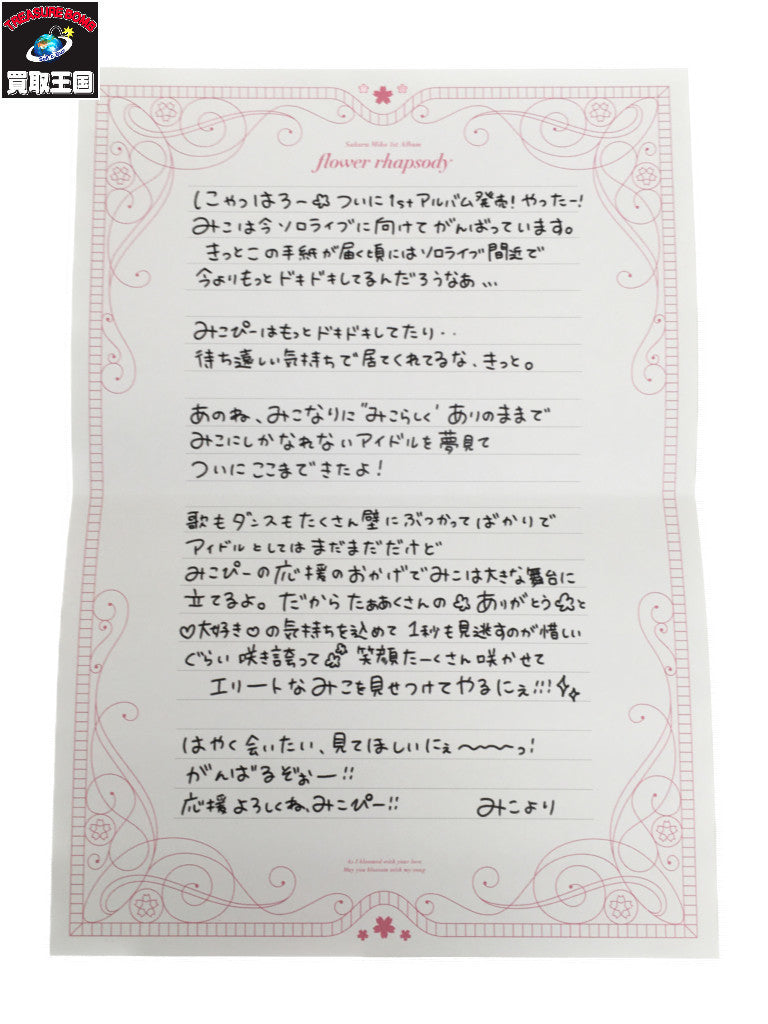 TREASURE BOMB
買取王国
Sakura Miko 1st Album
flower rhapsody
にゃっはろー🌸ついに1stアルバム発売!やったー!
みこは今ソロライブに向けてがんばっています。
きっとこの手紙が届く頃にはソロライブ間近で
今よりもっとドキドキしてるんだろうなあ...
みこぴーはもっとドキドキしてたり‥
待ち遠しい気持ちで居てくれてるな、きっと。
あのね、みこなりに"みこらしく"ありのままで
みこにしかなれないアイドルを夢見て
ついにここまできたよ!
歌もダンスもたくさん壁にぶつかってばかりで
アイドルとしてはまだまだだけど
みこぴーの応援のおかげでみこは大きな舞台に
立てるよ。だからたぁぁくさんの🌸ありがとう🌸と
♡大好き♡の気持ちを込めて1秒も見逃すのが惜しい
ぐらい咲き誇って🌸笑顔たーくさん咲かせて
エリートなみこを見せつけてやるにぇ!!!✨
はやく会いたい、見てほしいにぇ〜〜〜っ!
がんばるぞぉー!!
応援よろしくね、みこぴー!! みこより
As I bloomed with your love
May you blossom with my song